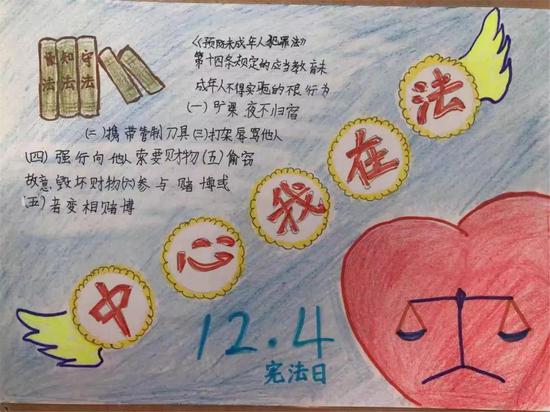 知法
守法
《《预防未成年人犯罪法》
第十四条规定的应当教育未
成年人不得实施的不良行为
(一)旷课 夜不归宿
(二)携带管制刀具(三)打架辱骂他人
(四)强行向他人索要财物(五)偷窃
故意毁坏财物(六)参与赌博或
(五)者变相赌博
法在我心中
12.4
宪法日